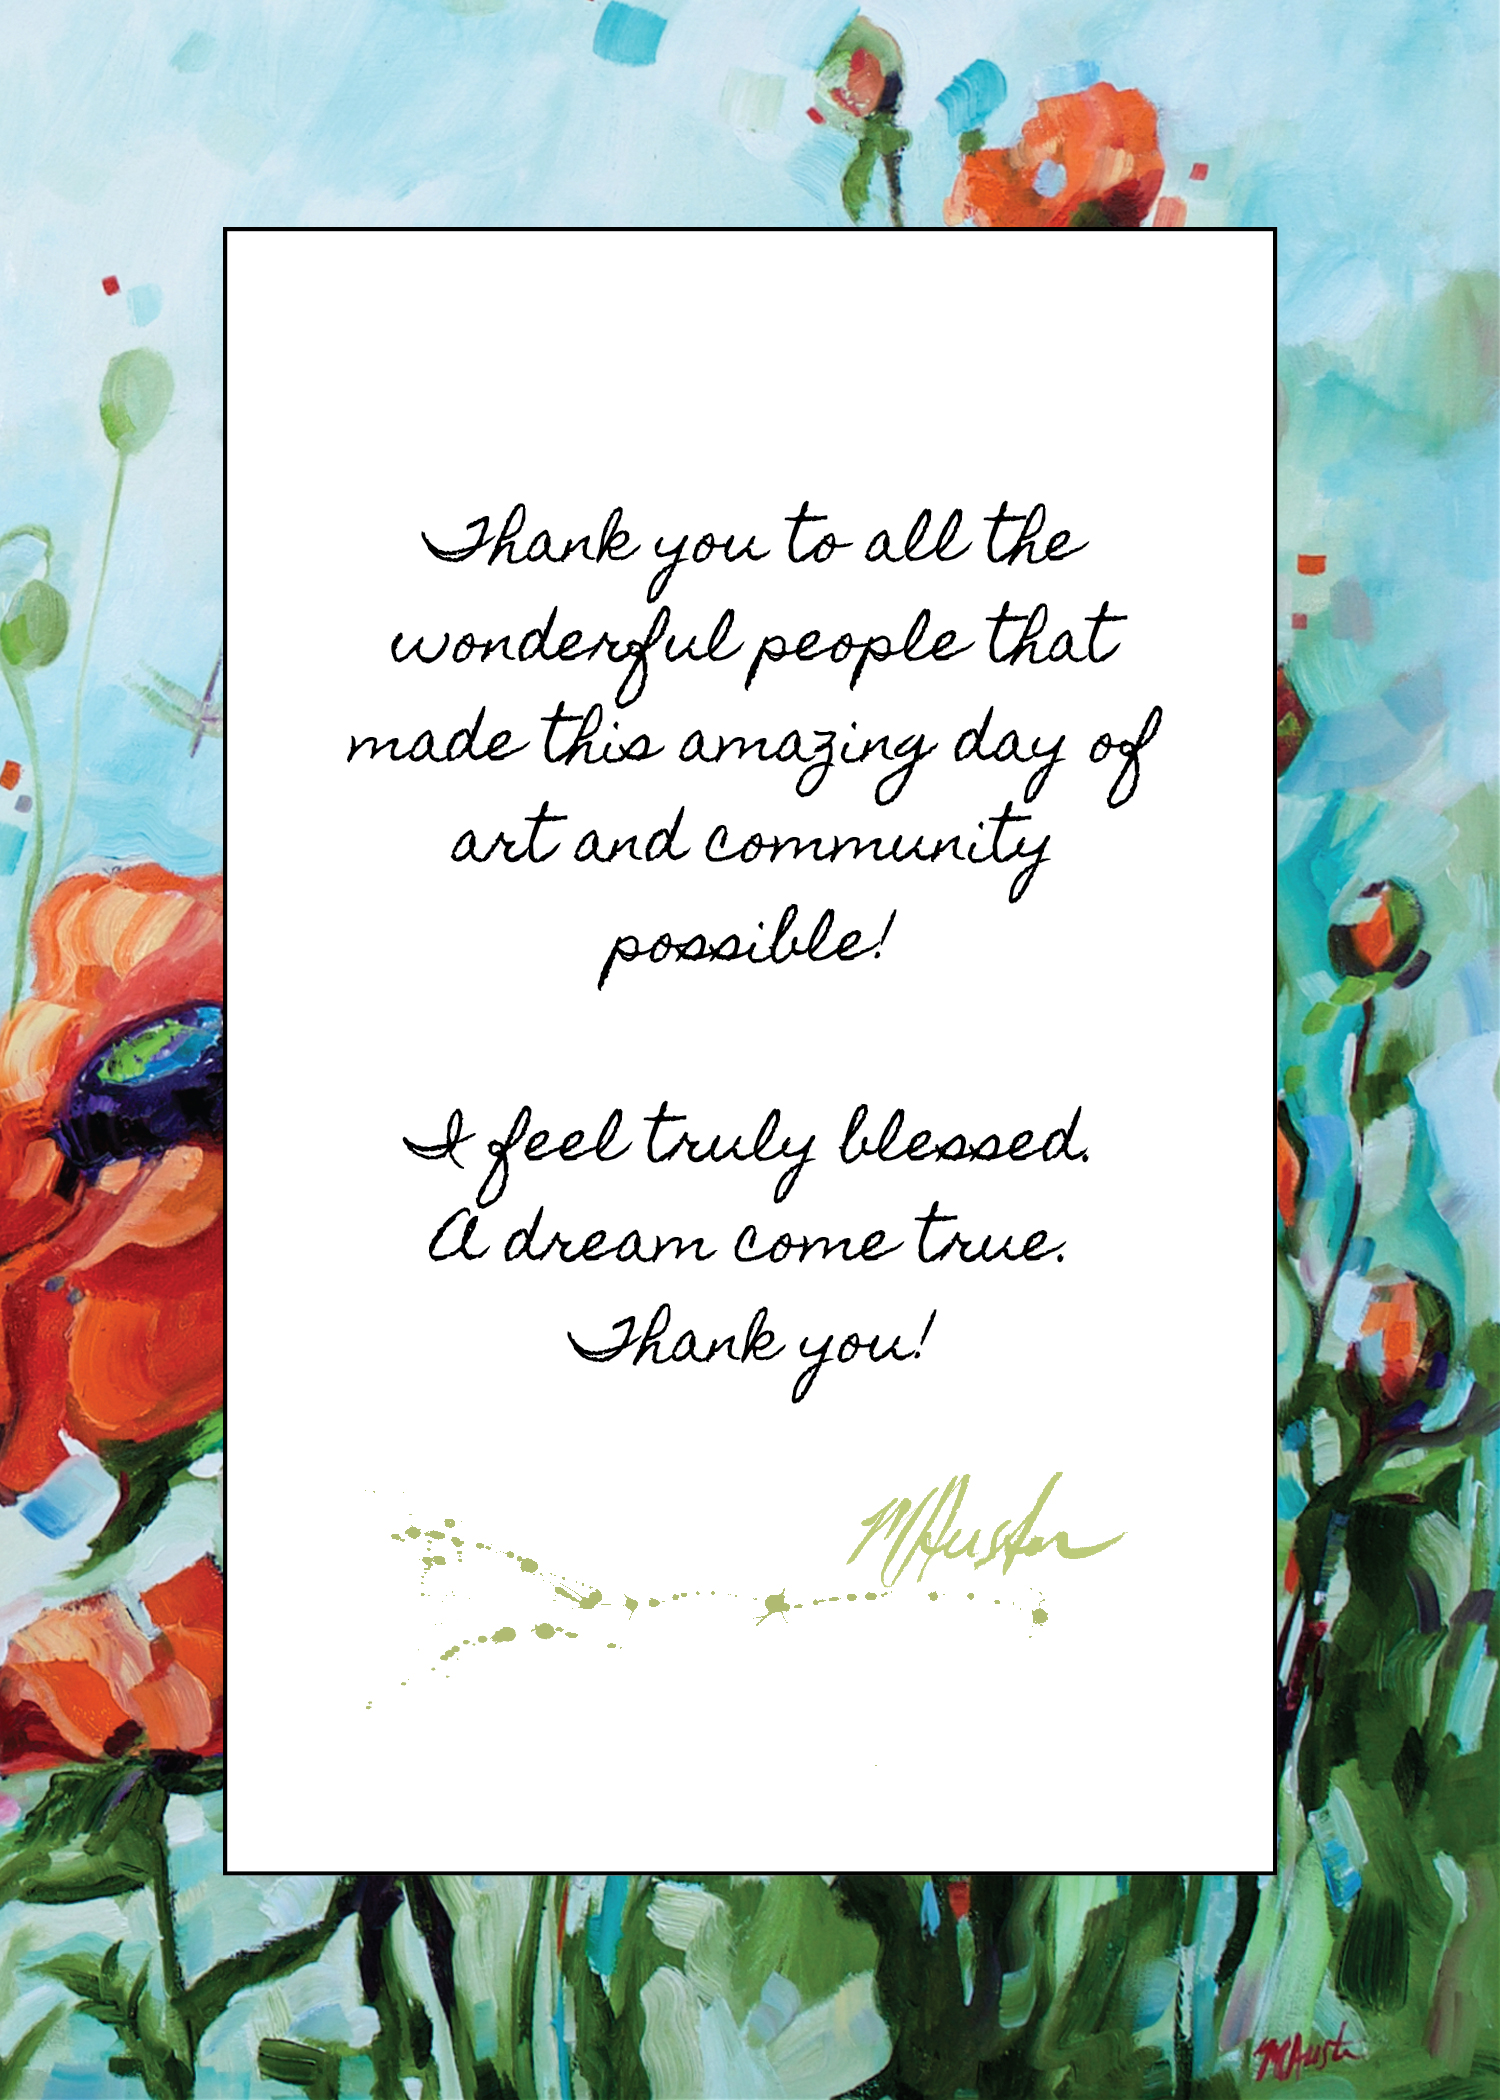 Thank you to all the
wonderful people that
made this amazing day of
art and community
possible!
I feel truly blessed.
A dream come true.
Thank you!
MAustin
MAustin